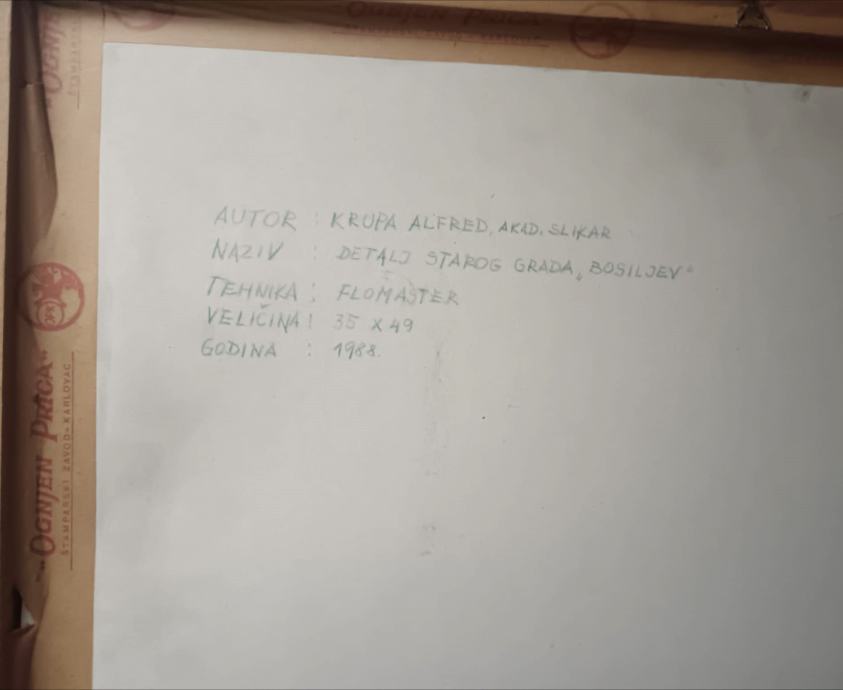 OGNJEN PRICA
AUTOR : KRUPA ALFRED, AKAD. SLIKAR
NAZIV : DETALJ STAROG GRADA „BOSILJEV“
TEHNIKA : FLOMASTER
VELIČINA : 35 X 49
GODINA : 1988.
„OGNJEN PRICA“
ŠTAMPARSKI ZAVOD - KARLOVAC